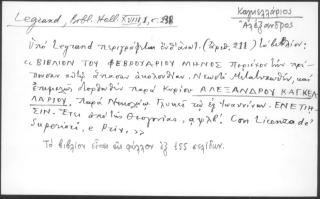 Legrand, Bibl. Hell. XVIII, 1, σ. 238
Καγκελλάριος
Ἀλέξανδρος
Ὑπὸ Legrand περιγράφεται ἐν σελ. (ἀριθ. 211) τὸ βιβλίον:
« ΒΙΒΛΙΟΝ ΤΟΥ ΦΕΒΡΟΥΑΡΙΟΥ ΜΗΝΟΣ Περιέχον τὴν πρέ-
πουσαν αὐτῷ ἅπασαν ἀκολουθίαν. Νεωστὶ Μετατυπωθὲν, καὶ
ἐπιμελῶς διορθωθὲν παρὰ Κυρίου ΑΛΕΞΑΝΔΡΟΥ ΚΑΓΚΕΛ-
ΛΑΡΙΟΥ. Παρὰ Νικολάῳ Γλυκεῖ τῷ ἐξ Ἰωαννίνων. ΕΝΕΤΙΗ-
ΣΙΝ. Ἔτει ἀπὸ τῆς Θεογονίας, Con Licenza de'
Superiori, e Priv. »
Τὸ βιβλίον εἶναι εἰς φύλλον ἐξ 155 σελίδων.